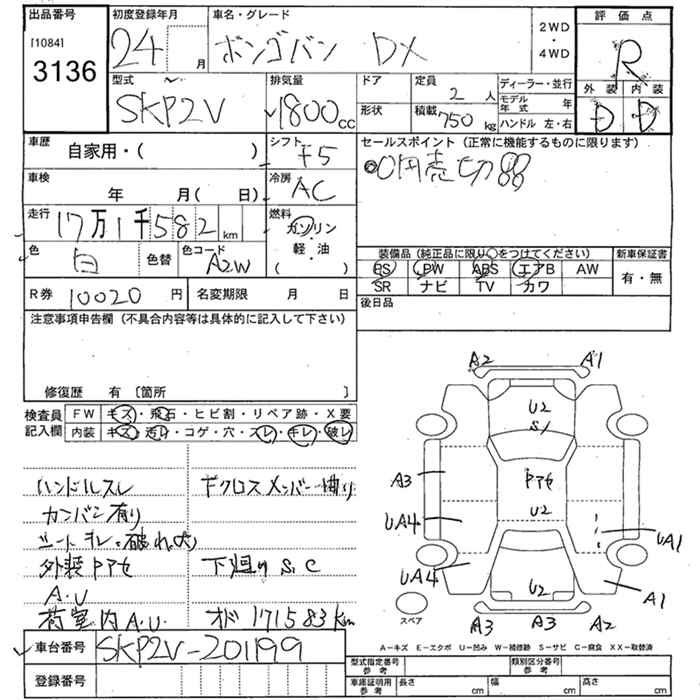 出品番号 初度登録年月 車名・グレード 2WD・4WD 評価点
[1084] 3136 24 月 ボンゴバン DX R
外装 内装
D D
型式 SKP2V 排気量 1800 cc ドア 定員 2 人 ディーラー・並行
形状 積載 750 kg モデル年式 年
ハンドル 左・右
車歴 自家用・( ) シフト F5 セールスポイント (正常に機能するものに限ります)
0円売切!!
車検 年 月( 日) 冷房 AC
走行 17万1千582 km 燃料 ガソリン・軽・油 ( )
色 白 色替 色コード A2W
装備品 (純正品に限り○をつけてください) 新車保証書
PS PW ABS エアB AW 有・無
SR ナビ TV カワ
R券 10020 円 名変期限 月 日 後日品
注意事項申告欄 (不具合内容等は具体的に記入して下さい)
修復歴 有 [箇所 ]
検査員記入欄 FW キズ・飛石・ヒビ割・リペア跡・X要
内装 キズ・汚れ・コゲ・穴・スレ・キレ・破レ
ハンドルスレ 下クロスメンバー曲り
カンバン有り
シートキレ・破れ(大)
外装PアセA.U 下廻りS.C
荷室内A.U. オド171583km
A2 A1
U2
S1
A3 Pアセ
U2
UA4 UA1
UA4 A1
U2
スペア A3 A3 A2
A―キズ E―エクボ U―凹み W―補修跡 S―サビ C―腐食 XX―取替済
車台番号 SKP2V-201199
型式指定番号 類別区分番号
登録番号 車庫証明用参考 長さ cm 幅 cm 高さ cm